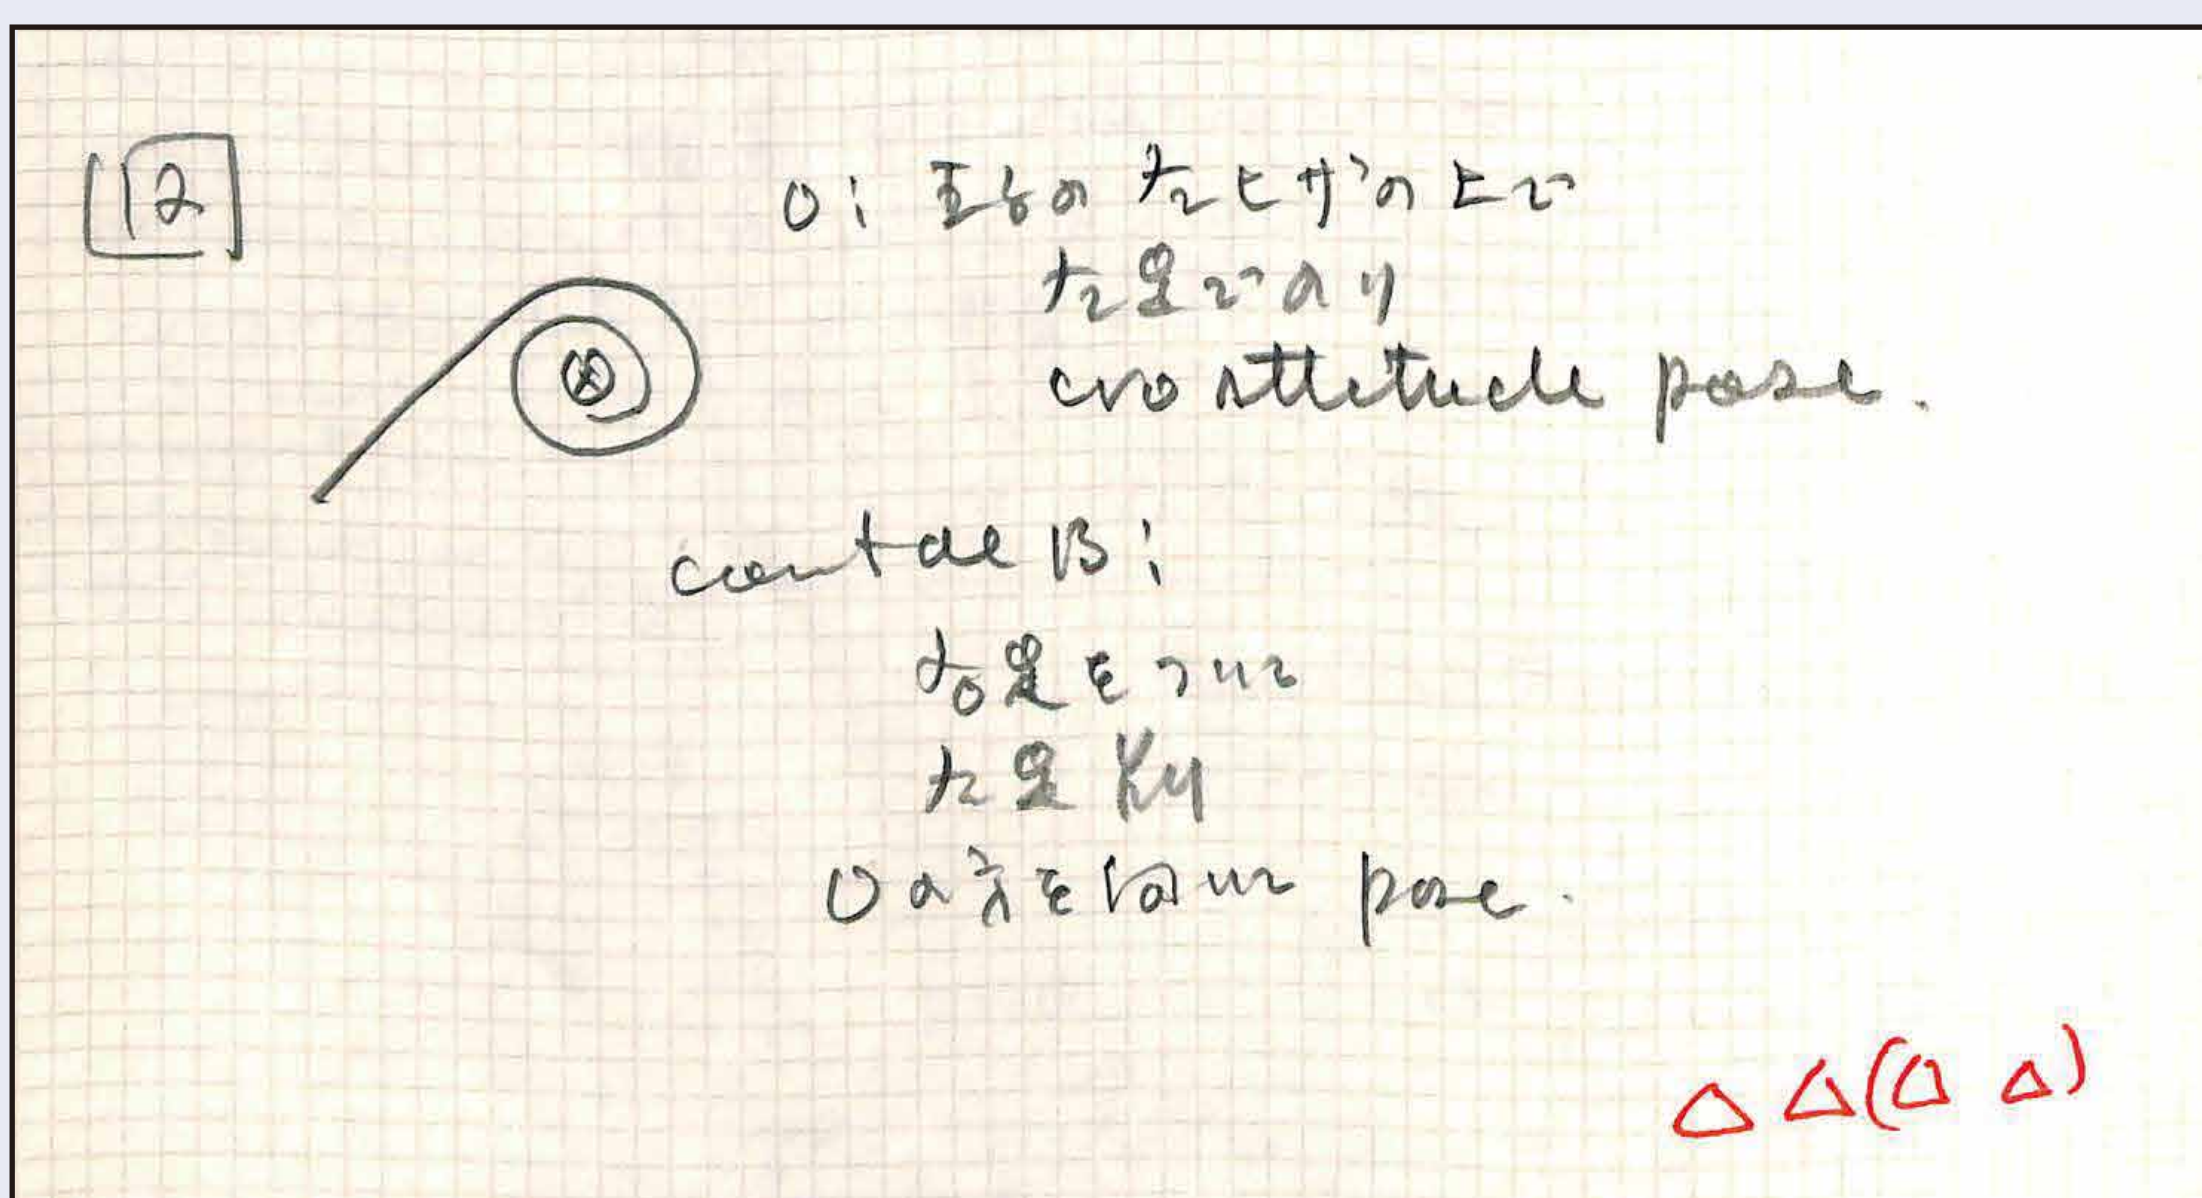 12
O: 王子の左ヒザの上で
左足でのり
cro attitude pose.
contae B:
右足をついて
左足
Oの方を向いて pose.
△ △(△ △)